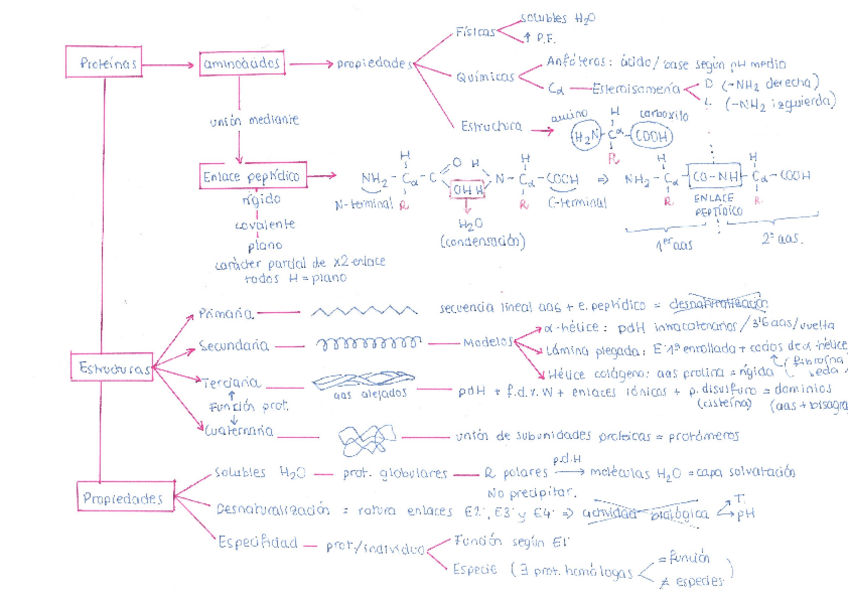 Proteínas
aminoácidos
propiedades
Físicas
solubles H₂O
↑ P.F.
Químicas
Anfóteros: ácido/base según pH medio
Cα — Estereoisomería
D (-NH₂ derecha)
L (-NH₂ izquierda)
Estructura
amino
carboxilo
H
H₂N - Cα - COOH
R
unión mediante
Enlace peptídico
rígido
covalente
plano
carácter parcial de x2 enlace
todos H = plano
H O H H
NH₂ - Cα - C OH H N - Cα - COOH ⇒ NH₂ - Cα - CO-NH - Cα - COOH
H H
N-terminal R R C-terminal R R
H₂O
(condensación)
ENLACE
PEPTÍDICO
1er aas
2º aas.
Estructuras
Primaria
secuencia lineal aas + e. peptídico = desnaturalización
Secundaria
Modelos
α-hélice: pdH intracatenarios / 3'6 aas/vuelta
Lámina plegada: E 1ª enrollada + codos de α hélice
(fibroína seda
Hélice colágeno: aas prolina = rígida
Terciaria
aas alejados
pdH + f.d.v.W + enlaces iónicos + p. disulfuro = dominios
(cisteína)
(aas + bisagra
Función prot.
Cuaternaria
unión de subunidades proteicas = protómeros
Propiedades
Solubles H₂O — prot. globulares — R polares
p.d.H
moléculas H₂O = capa solvatación
No precipitar.
Desnaturalización = rotura enlaces E2', E3' y E4' ⇒ actividad biológica
T
pH
Especifidad — prot/individuo
Función según E1'
Especie (∃ prot. homólogas
= función
≠ especies)